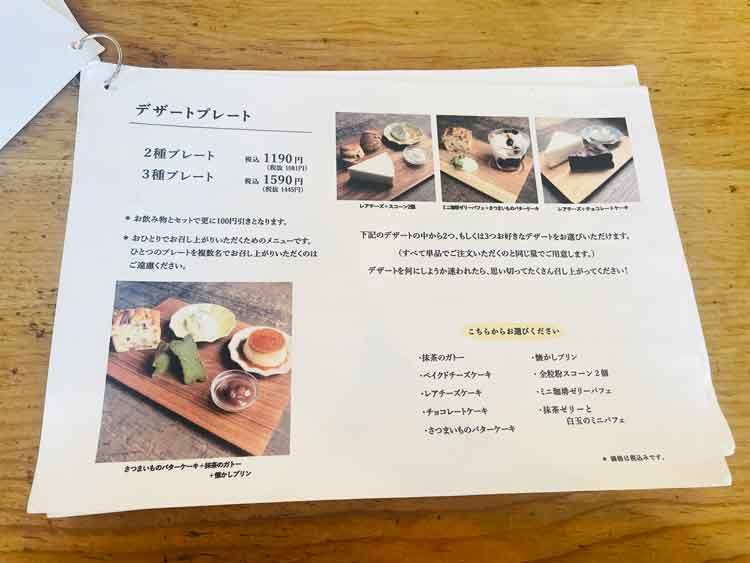 デザートプレート
2種プレート 税込 1190円
(税抜 1081円)
3種プレート 税込 1590円
(税抜 1445円)
* お飲み物とセットで更に100円引きとなります。
* おひとりでお召し上がりいただくためのメニューです。
ひとつのプレートを複数名でお召し上がりいただくのは
ご遠慮ください。
さつまいものバターケーキ+抹茶のガトー
+懐かしプリン
レアチーズ+スコーン2個
ミニ珈琲ゼリーパフェ+さつまいものバターケーキ
レアチーズ+チョコレートケーキ
下記のデザートの中から2つ、もしくは3つお好きなデザートをお選びいただけます。
(すべて単品でご注文いただくのと同じ量でご用意します。)
デザートを何にしようか迷われたら、思い切ってたくさん召し上がってください!
こちらからお選びください
・抹茶のガトー
・ベイクドチーズケーキ
・レアチーズケーキ
・チョコレートケーキ
・さつまいものバターケーキ
・懐かしプリン
・全粒粉スコーン2個
・ミニ珈琲ゼリーパフェ
・抹茶ゼリーと
白玉のミニパフェ
* 価格は税込みです。